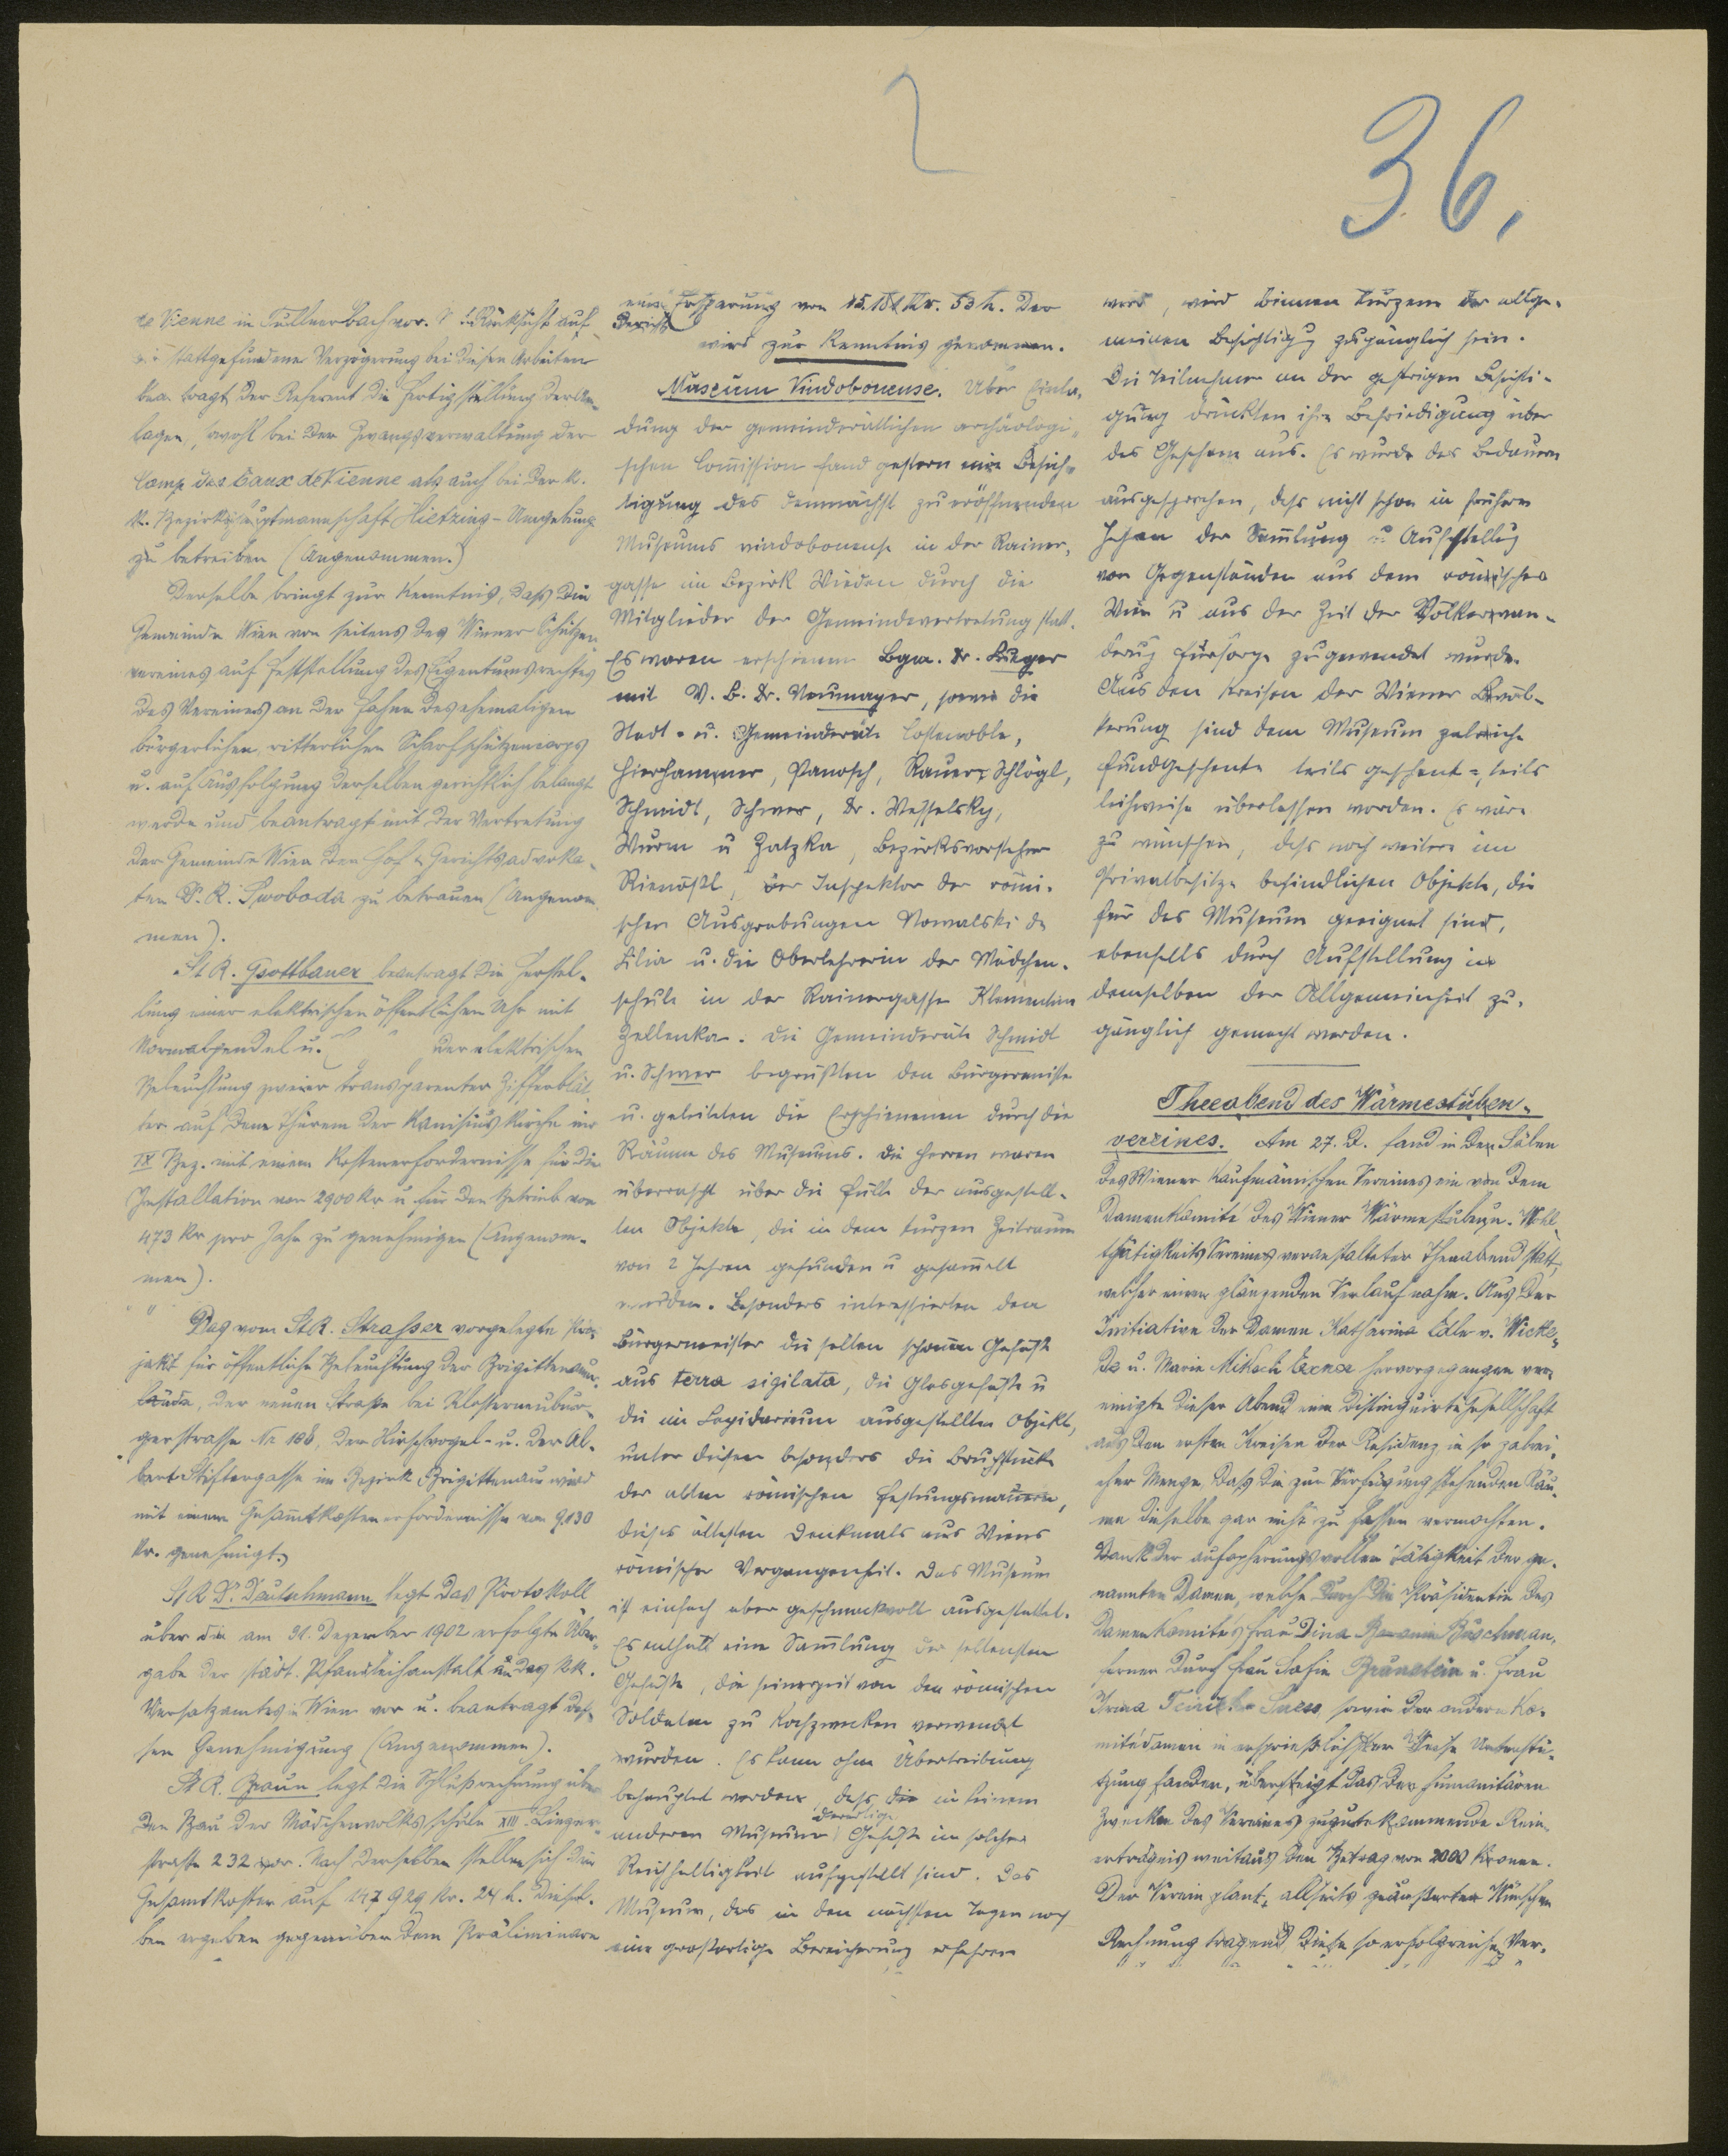 2
36.
de Vienne in Tullnerbach vor. Rücksicht auf
die stattgefundene Verzögerung bei diesen Arbeiten
beantragt der Referent die Fertigstellung der An-
lagen, wohl bei der Zwangsverwaltung der
Comp. des Eaux de Vienne als auch bei der k.
k. Bezirkshauptmannschaft Hietzing-Umgebung
zu betreiben (Angenommen.)
Derselbe bringt zur Kenntnis, daß die
Gemeinde Wien von seitens des Wiener Schützen-
vereines auf Feststellung des Eigentumsrechtes
des Vereines an der Fahne des ehemaligen
bürgerlichen, ritterlichen Scharfschützencorps
u. auf Ausfolgung derselben gerichtlich belangt
werde und beantragt mit der Vertretung
der Gemeinde Wien den Hof- u. Gerichtsadvoka-
ten Dr. R. Swoboda zu betrauen (Angenom-
men).
St.R. Gsottbauer beantragt die Herstel-
lung einer elektrischen öffentlichen Uhr mit
Normalpendel u. der elektrischen
Beleuchtung zweier transparenter Zifferblät-
ter auf dem Thurm der Kanisius Kirche im
IX Bez. mit einem Kostenerfordernisse für die
Installation von 2900 Kr u. für den Betrieb von
473 Kr pro Jahr zu genehmigen (Angenom-
men).
Das vom St.R. Strasser vorgelegte Pro-
jekt für öffentliche Beleuchtung der Brigittenauer-
lände, der neuen Straße bei Klosterneubur-
gerstrasse Nr 108, der Hirschvogel- u. der Al-
bert Stiftergasse im Bezirk Brigittenau wird
mit einem Gesamtkostenerfordernisse von 9.130
Kr. genehmigt.
St R Dr. Deutschmann legt das Protokoll
über die am 31. Dezember 1902 erfolgte Über-
gabe der städt. Pfandleihanstalt an das k.k.
Versatzamt in Wien vor u. beantragt des-
sen Genehmigung (Angenommen).
St R. Braun legt die Schlußrechnung über
den Bau der Mädchenvolksschule XIII. Linzer-
straße 232 vor. Nach derselben stellen sich die
Gesamtkosten auf 147.929 Kr. 24 h. Diesel-
ben ergeben gegenüber dem Präliminare
eine Ersparung von 15.181 Kr. 53 h. Der
Bericht
wird zur Kenntnis genommen.
Museum Vindobonense. Über Einla-
dung der gemeinderätlichen archäologi-
schen Commission fand gestern eine Besich-
tigung des demnächst zu eröffnenden
Museums vindobonense in der Rainer-
gasse im Bezirk Wieden durch die
Mitglieder der Gemeindevertretung statt.
Es waren erschienen Bgm. Dr. Lueger
mit V. B. Dr. Neumayer, sowie die
Stadt- u. Gemeinderäte Costenoble,
Hierhammer, Panosch, Rauer, Schlögl,
Schmidt, Schwer, Dr. Wesselsky,
Wurm u Zatzka, Bezirksvorsteher
Rienößl, der Inspektor der römi-
schen Ausgrabungen Nowalski de
Lilia u. die Oberlehrerin der Mädchen-
schule in der Rainergasse Klementine
Zellenka. Die Gemeinderäte Schmidt
u. Schwer begrüßten den Bürgermeister
u. geleiteten die Erschienenen durch die
Räume des Museums. Die Herren waren
überrascht über die Fülle der ausgestell-
ten Objekte, die in dem kurzen Zeitraum
von 2 Jahren gefunden u gesammelt
wurden. Besonders interessierten den
Bürgermeister die selten schönen Gefäße
aus terra sigilata, die Glasgefäße u
die im Lapidarium ausgestellten Objekte,
unter diesen besonders die Bruchstücke
der alten römischen Festungsmauern,
dieses ältesten Denkmals aus Wiens
römischer Vergangenheit. Das Museum
ist einfach aber geschmackvoll ausgestattet.
Es enthält eine Sammlung der seltensten
Gefäße, die seinerzeit von den römischen
Soldaten zu Kochzwecken verwendet
wurden. Es kann ohne Übertreibung
behauptet werden, dass die in keinem
anderen Museum derartige Gefäße in solcher
Reichhaltigkeit aufgestellt sind. Das
Museum, das in den nächsten Tagen noch
eine großartige Bereicherung erfahren
wird, wird binnen kurzem der allge-
meinen Besichtigung zugänglich sein.
Die Teilnehmer an der gestrigen Besichti-
gung drückten ihre Befriedigung über
das Gesehene aus. Es wurde das Bedauern
ausgesprochen, dass nicht schon in früheren
Jahren der Sammlung u. Aufstellung
von Gegenständen aus dem römischen
Wien u aus der Zeit der Völkerwan-
derung Fürsorge zugewendet wurde.
Aus den Kreisen der Wiener Bevöl-
kerung sind dem Museum zahlreiche
Fundgeschenke teils geschenk-, teils
leihweise überlassen worden. Es wäre
zu wünschen, dass noch weitere im
Privatbesitze befindlichen Objekte, die
für das Museum geeignet sind,
ebenfalls durch Aufstellung in
demselben der Allgemeinheit zu-
gänglich gemacht werden.
Theeabend des Wärmestuben-
vereines. Am 27. d. fand in den Sälen
des Wiener kaufmännischen Vereines ein von dem
Damenkomite des Wiener Wärmestuben- Wohl-
thätigkeits Vereines veranstalteter Theeabend statt,
welcher einen glänzenden Verlauf nahm. Aus der
Initiative der Damen Katharina Edle v. Wicke-
de u. Marie Miksch Exner hervorgegangen ver-
einigte dieser Abend eine distinguirte Gesellschaft
aus den ersten Kreisen der Residenz in so zahlrei-
cher Menge, daß die zur Verfügung stehenden Räu-
me dieselbe gar nicht zu fassen vermochten.
Dank der aufopferungsvollen Tätigkeit der ge-
nannten Damen, welche durch die Präsidentin des
Damenkomites Frau Dina Büschman,
ferner durch Frau Sofie Braunstein u. Frau
Irma Suess sowie der anderen Ko-
mitédamen in ersprießlichster Weise Unterstü-
tzung fanden, übersteigt das den humanitären
Zwecken des Vereines zugutekommende Rein-
erträgnis weitaus den Betrag von 2000 Kronen.
Der Verein plant, allseits geäußerten Wünschen
Rechnung tragend diese so erfolgreichen Ver-